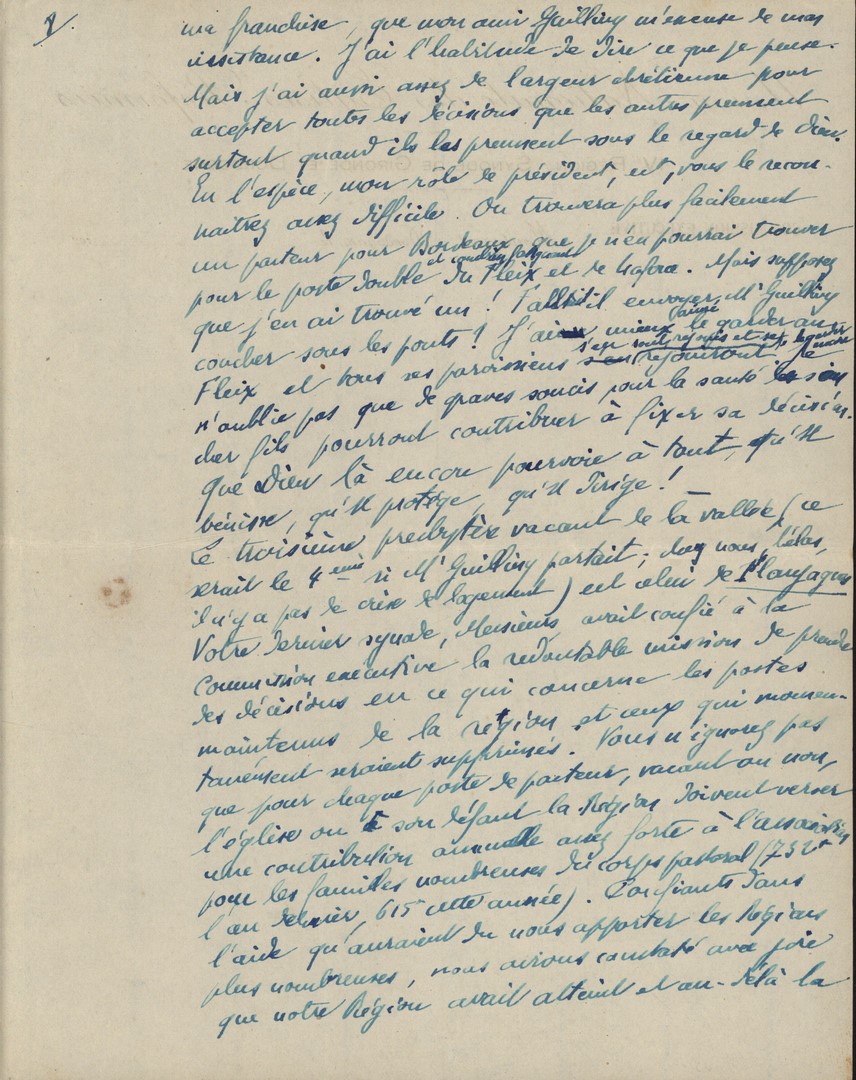 8.
ma franchise, que mon ami Guilhiny m'excuse de mon
insistance. J'ai l'habitude de dire ce que je pense.
Mais j'ai aussi assez de largeur chrétienne pour
accepter toutes les décisions que les autres prennent
surtout quand ils les prennent sous le regard de Dieu.
En l'espèce, mon rôle de président, est, vous le recon-
naitrez assez difficile. On trouvera plus facilement
un pasteur pour Bordeaux que je n'en pourrai trouver
pour le poste double du Fleix et de Laforce. Mais supposez
que j'en ai trouvé un ! Fallait-il envoyer Mr Guilhiny
coucher sous les ponts ! J'ai mieux aimé le garder au
Fleix et tous ses paroissiens s'en sont réjouis et se réjouiront de le garder encore. Je
n'oublie pas que de graves soucis pour la santé de son
cher fils pourront contribuer à fixer sa décision.
Que Dieu là encore pourvoie à tout, qu'Il
bénisse, qu'Il protège, qu'Il dirige !
Le troisième presbytère vacant de la vallée (ce
serait le 4eme si Mr Guilhiny partait ; chez nous, hélas,
il n'y a pas de crise de logement) est celui de Flaujagues
Votre dernier synode, Messieurs, avait confié à la
Commission exécutive la redoutable mission de prendre
des décisions en ce qui concerne les postes
maintenus de la région et ceux qui momen-
tanément seraient supprimés. Vous n'ignorez pas
que pour chaque poste de pasteur, vacant ou non,
l'église ou à son défaut la Région doivent verser
une contribution annuelle assez forte à l'association
pour les familles nombreuses du corps pastoral (732 f
l'an dernier, 615 cette année). Confiants dans
l'aide qu'auraient du nous apporter les Régions
plus nombreuses, nous avions constaté avec joie
que notre Région avait atteint et au-delà la